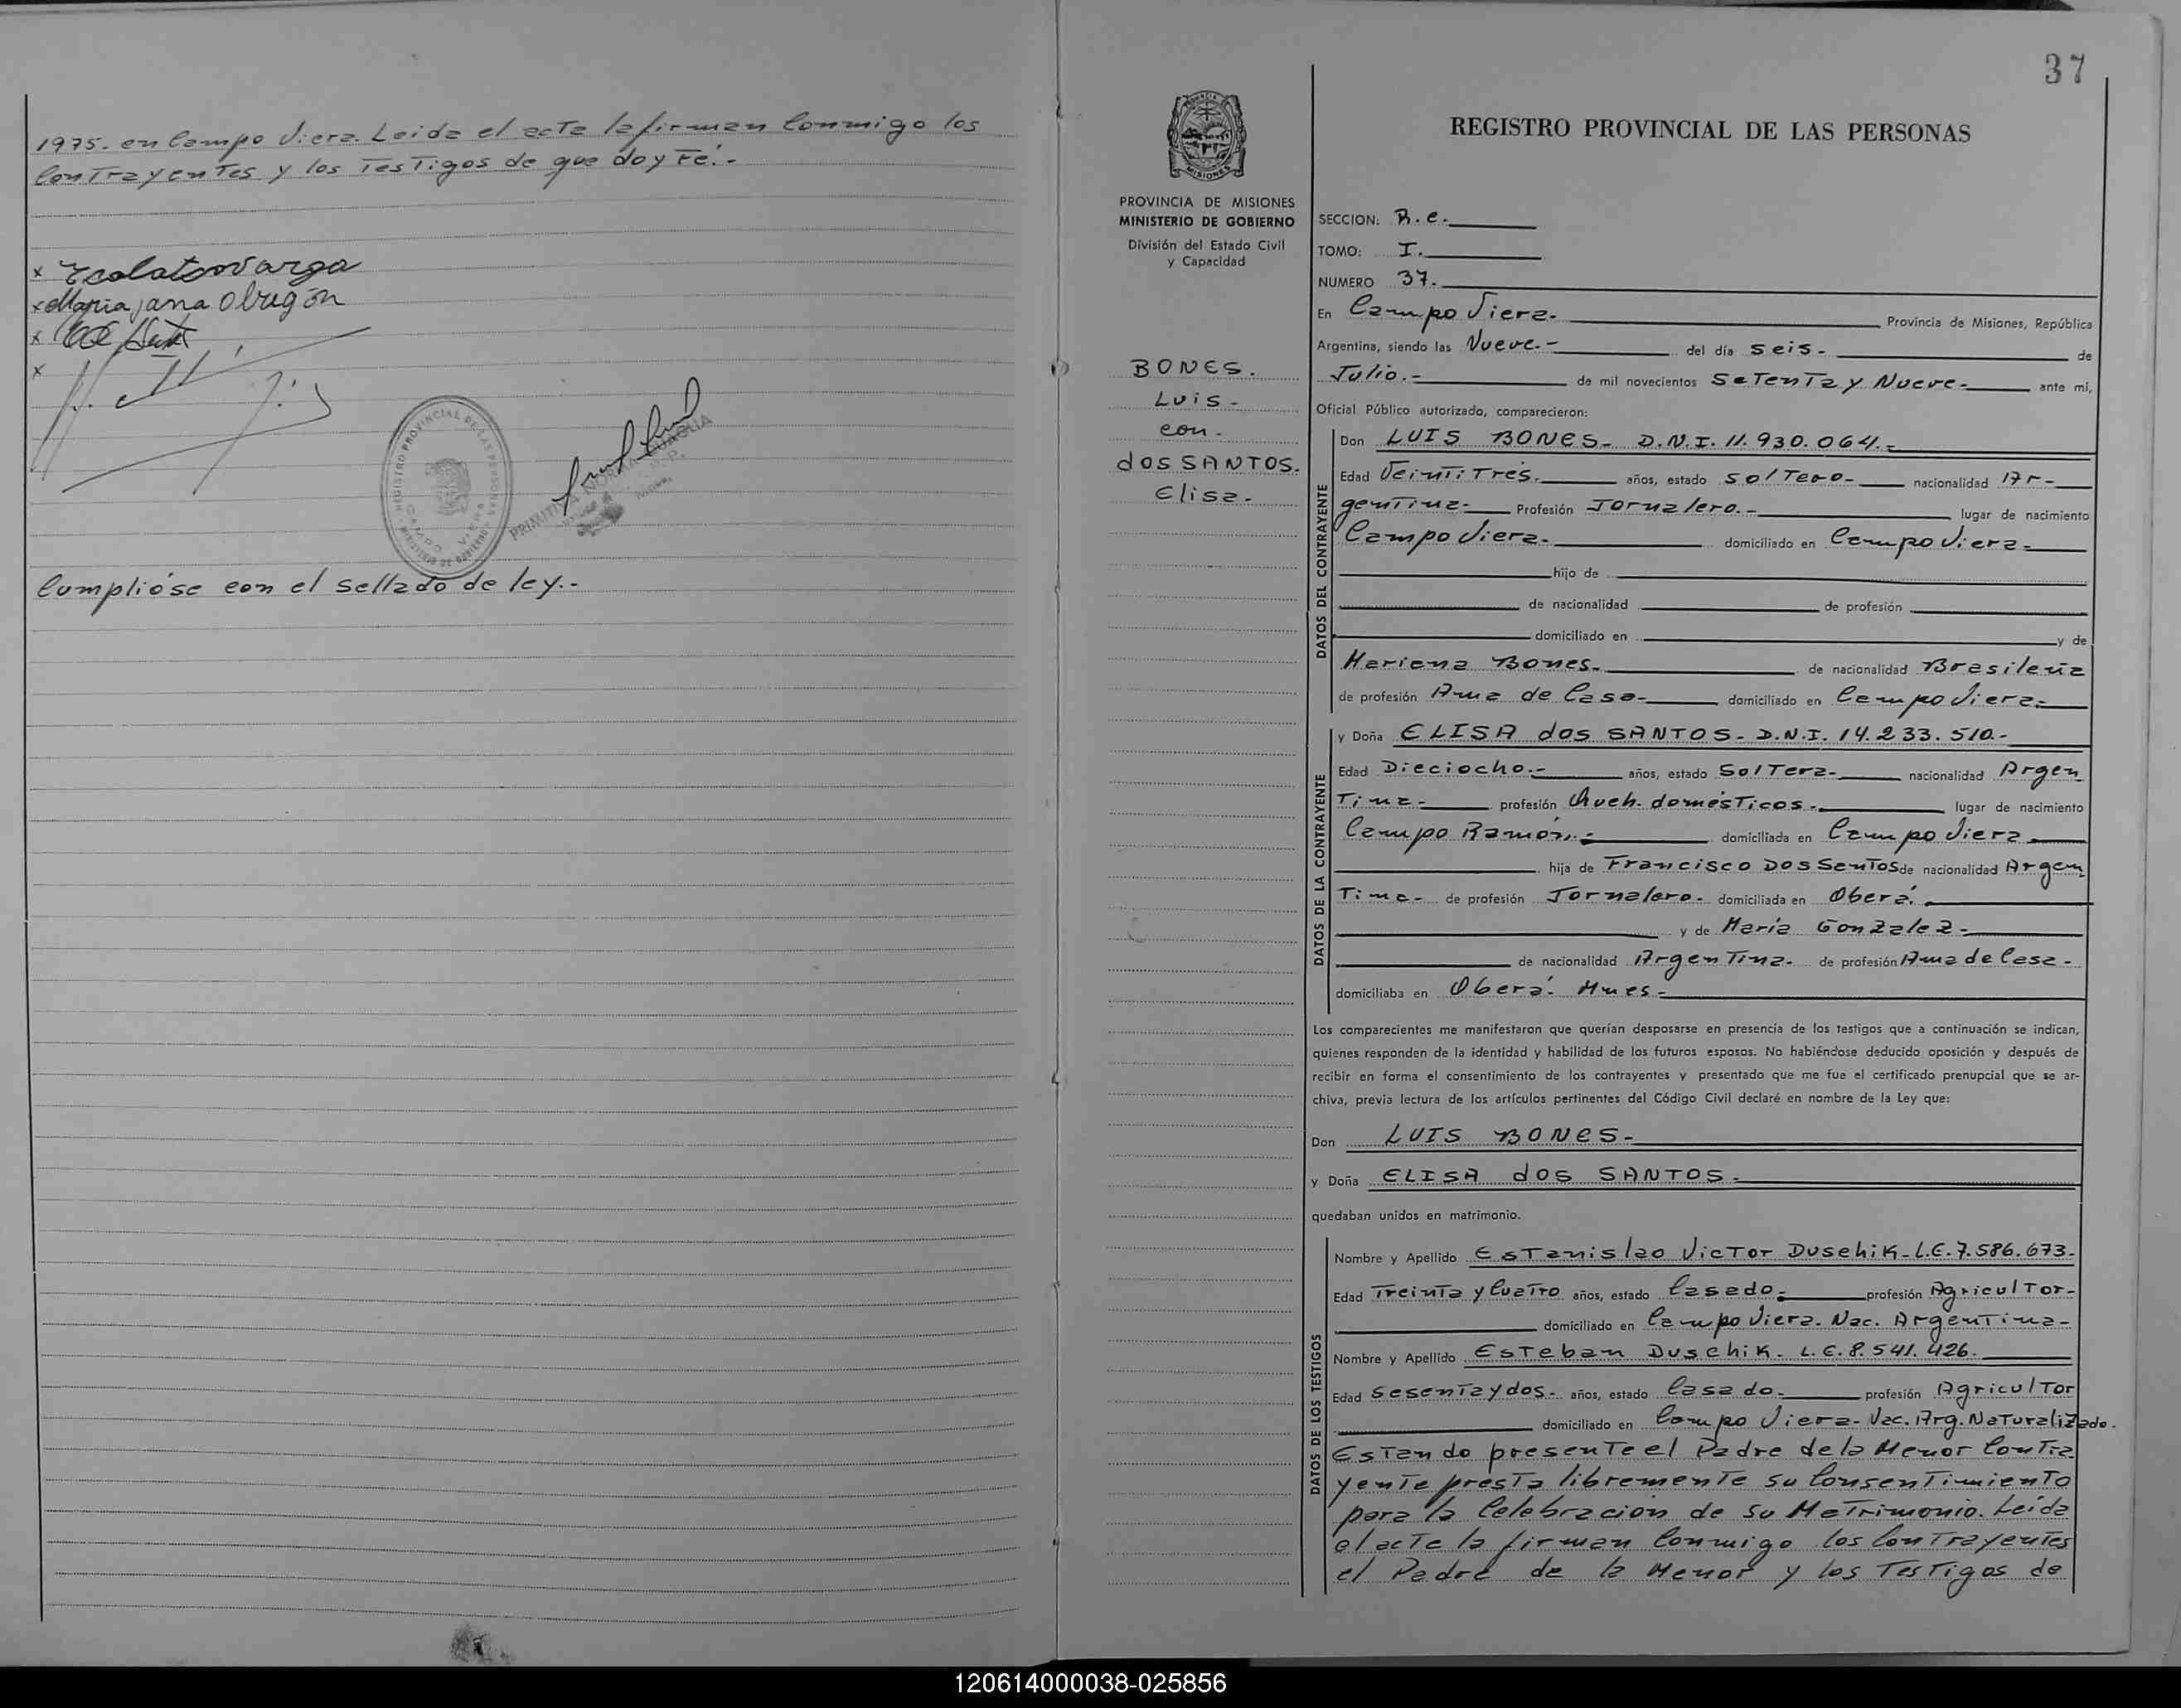 1975. en Campo Viera. Leida el acta la firman Conmigo los
Contrayentes y los Testigos de que doy Fé.-
x
x Maria jana Obregón
x
x
REGISTRO PROVINCIAL DE LAS PERSONAS
CAMPO VIERA
PRIMITIVA NORMA
Cumplióse con el sellado de ley.-
37
PROVINCIA DE MISIONES
MINISTERIO DE GOBIERNO
División del Estado Civil
y Capacidad
BONES.
Luis-
con-
dos SANTOS.
Elisa-
REGISTRO PROVINCIAL DE LAS PERSONAS
SECCION: R.e.
TOMO: I.
NUMERO 37.
En Campo Viera.- Provincia de Misiones, República
Argentina, siendo las Nueve.- del día seis.- de
Julio.- de mil novecientos SeTenTa y Nueve- ante mi,
Oficial Público autorizado, comparecieron:
DATOS DEL CONTRAYENTE
Don LUIS BONES- D.N.I. 11.930.064.-
Edad VeinTiTrés. años, estado SolTero- nacionalidad Ar-
genTina- Profesión Jornalero.- lugar de nacimiento
Campo Viera.- domiciliado en Campo Viera-
hijo de
de nacionalidad de profesión
domiciliado en y de
Mariana Bones- de nacionalidad Brasileña
de profesión Ama de Casa- domiciliado en Campo Viera-
DATOS DE LA CONTRAYENTE
y Doña ELISA dos SANTOS- D.N.I. 14.233.510.-
Edad Dieciocho.- años, estado SolTera- nacionalidad Argen
Tina- profesión Queh. domésTicos.- lugar de nacimiento
Campo Ramón.- domiciliada en Campo Viera
hija de Francisco Dos SanTos de nacionalidad Argen
Tina- de profesión Jornalero. domiciliada en Oberá.
y de María Gonzalez-
de nacionalidad ArgenTina- de profesión Ama de Casa-
domiciliaba en Oberá- Mnes-
Los comparecientes me manifestaron que querían desposarse en presencia de los testigos que a continuación se indican,
quienes responden de la identidad y habilidad de los futuros esposos. No habiéndose deducido oposición y después de
recibir en forma el consentimiento de los contrayentes y presentado que me fue el certificado prenupcial que se ar-
chiva, previa lectura de los artículos pertinentes del Código Civil declaré en nombre de la Ley que:
Don LUIS BONES-
y Doña ELISA dos SANTOS-
quedaban unidos en matrimonio.
DATOS DE LOS TESTIGOS
Nombre y Apellido EsTanislao VicTor Duschik-L.E.7.586.673-
Edad TreinTa y CuaTro años, estado Casado- profesión AgriculTor-
domiciliado en Campo Viera- Nac. ArgenTina-
Nombre y Apellido EsTeban Duschik- L.E.8.541.426.
Edad SesenTa y dos- años, estado Casado- profesión AgriculTor
domiciliado en Campo Viera- Nac. Arg. NaTuralizado.
EsTando presenTe el Padre de la Menor ConTra
yenTe presTa libremenTe su ConsenTimienTo
para la Celebración de su MaTrimonio. Leída
el acTa la firman Conmigo los ConTrayenTes
el Padre de la Menor y los TesTigos de
120614000038-025856